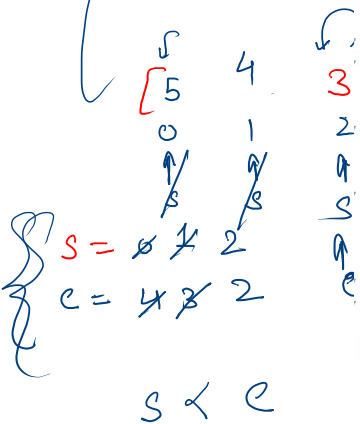 [5 4 3
0 1 2
↑ ↑ ↑
s s s
↑
s = 0 1 2 e
e = 4 3 2
s < e